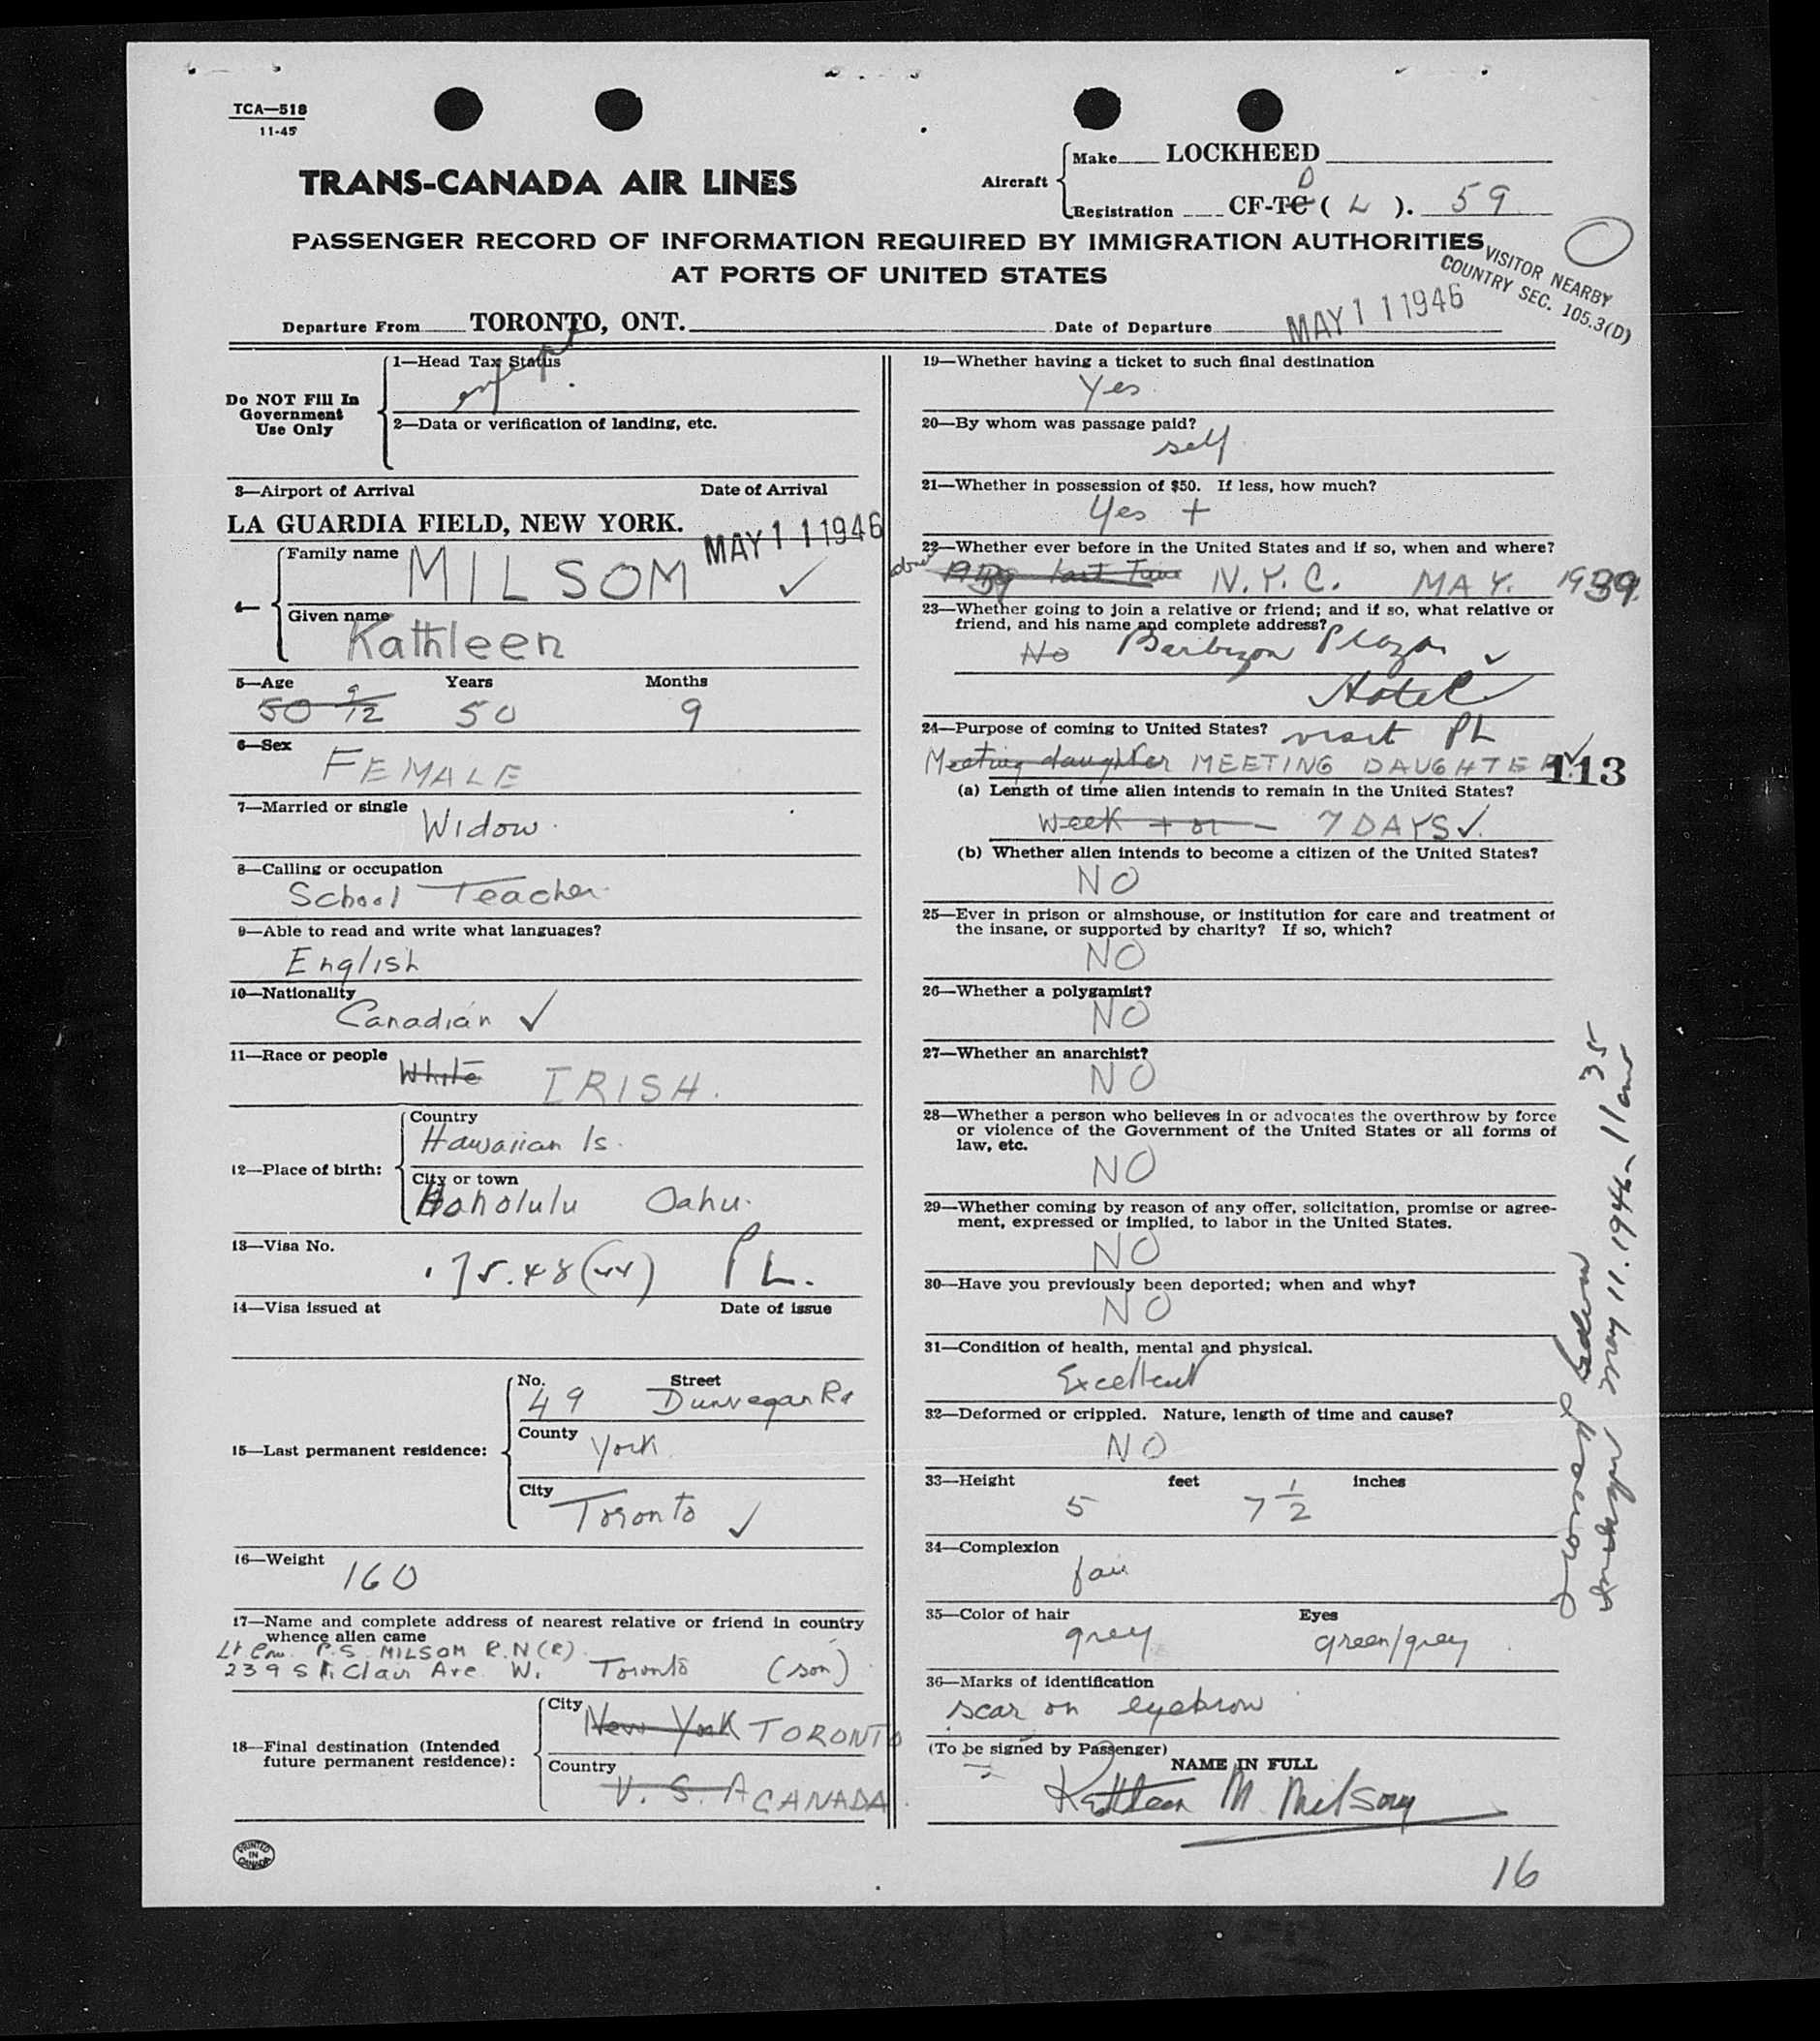 TCA—518
11-45
TRANS-CANADA AIR LINES
Aircraft
Make LOCKHEED
D
Registration CF-TC ( L ). 59
PASSENGER RECORD OF INFORMATION REQUIRED BY IMMIGRATION AUTHORITIES
AT PORTS OF UNITED STATES
VISITOR NEARBY
COUNTRY SEC. 105.3(D)
Departure From TORONTO, ONT. Date of Departure MAY 11 1946
Do NOT Fill In
Government
Use Only
1—Head Tax Status
exempt
2—Data or verification of landing, etc.
3—Airport of Arrival Date of Arrival
LA GUARDIA FIELD, NEW YORK. MAY 11 1946
4—
Family name MILSOM ✓
Given name
Kathleen
5—Age Years Months
50 9/12 50 9
6—Sex
FEMALE
7—Married or single
Widow.
8—Calling or occupation
School Teacher.
9—Able to read and write what languages?
English
10—Nationality
Canadian ✓
11—Race or people
White IRISH.
12—Place of birth:
Country
Hawaiian Is.
City or town
Honolulu Oahu.
13—Visa No.
175.48(44) PL.
14—Visa issued at Date of issue
15—Last permanent residence:
No. Street
49 Dunvegan Rd
County
York
City
Toronto ✓
16—Weight
160
17—Name and complete address of nearest relative or friend in country
whence alien came
Lt Com P.S. MILSOM R.N(R)
239 St. Clair Ave W. Toronto (son)
18—Final destination (Intended
future permanent residence):
City
New York TORONTO
Country
U. S. A CANADA
PRINTED
IN
CANADA
19—Whether having a ticket to such final destination
Yes
20—By whom was passage paid?
self
21—Whether in possession of $50. If less, how much?
Yes +
22—Whether ever before in the United States and if so, when and where?
1939 last Time N.Y.C. MAY. 1939.
23—Whether going to join a relative or friend; and if so, what relative or
friend, and his name and complete address?
No Barbizon Plaza ✓
Hotel
24—Purpose of coming to United States? visit PL
Meeting daughter MEETING DAUGHTER ✓
113
(a) Length of time alien intends to remain in the United States?
Week + or – 7 DAYS ✓.
(b) Whether alien intends to become a citizen of the United States?
NO
25—Ever in prison or almshouse, or institution for care and treatment of
the insane, or supported by charity? If so, which?
NO
26—Whether a polygamist?
NO
27—Whether an anarchist?
NO
28—Whether a person who believes in or advocates the overthrow by force
or violence of the Government of the United States or all forms of
law, etc.
NO
29—Whether coming by reason of any offer, solicitation, promise or agree-
ment, expressed or implied, to labor in the United States.
NO
30—Have you previously been deported; when and why?
NO
31—Condition of health, mental and physical.
Excellent
32—Deformed or crippled. Nature, length of time and cause?
NO
33—Height feet inches
5 7 1/2
34—Complexion
fair
35—Color of hair Eyes
grey green/grey
36—Marks of identification
scar on eyebrow
(To be signed by Passenger)
NAME IN FULL
Kathleen M. Milsom
May 11. 1946 - 11 35 am
16